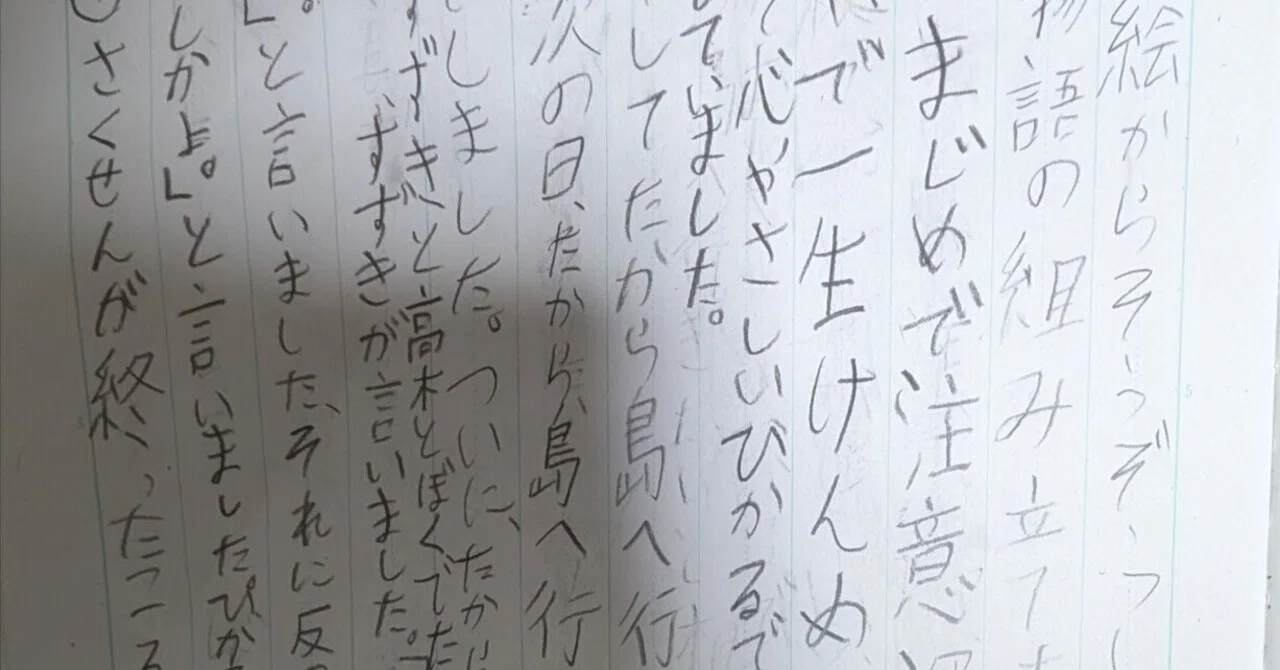 絵からそうぞうし
物語の組み立て
まじめで注意深
で一生けんめ
て心やさしいひかるで
ていました。
してたから島へ行
次の日、たから島へ行
しました。ついに、たから
すずきと高木とぼくでた
すずきが言いました。
」と言いました、それに反
しかよ。」と言いましたぴか
さくせんが終ったころ